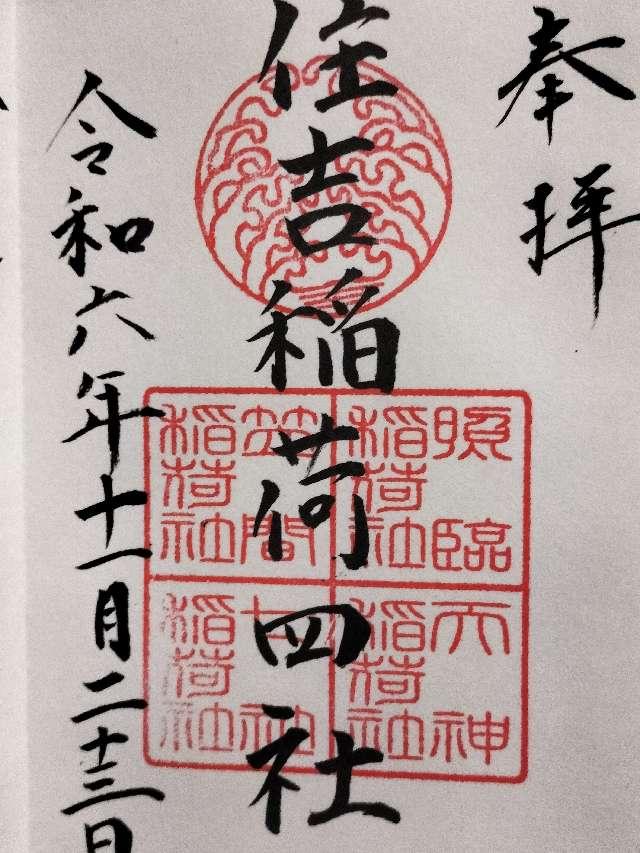 奉拝
住吉稲荷四社
照臨
稲荷社
笠間
稲荷社
天神
稲荷社
七社
稲荷社
令和六年十一月二十三日